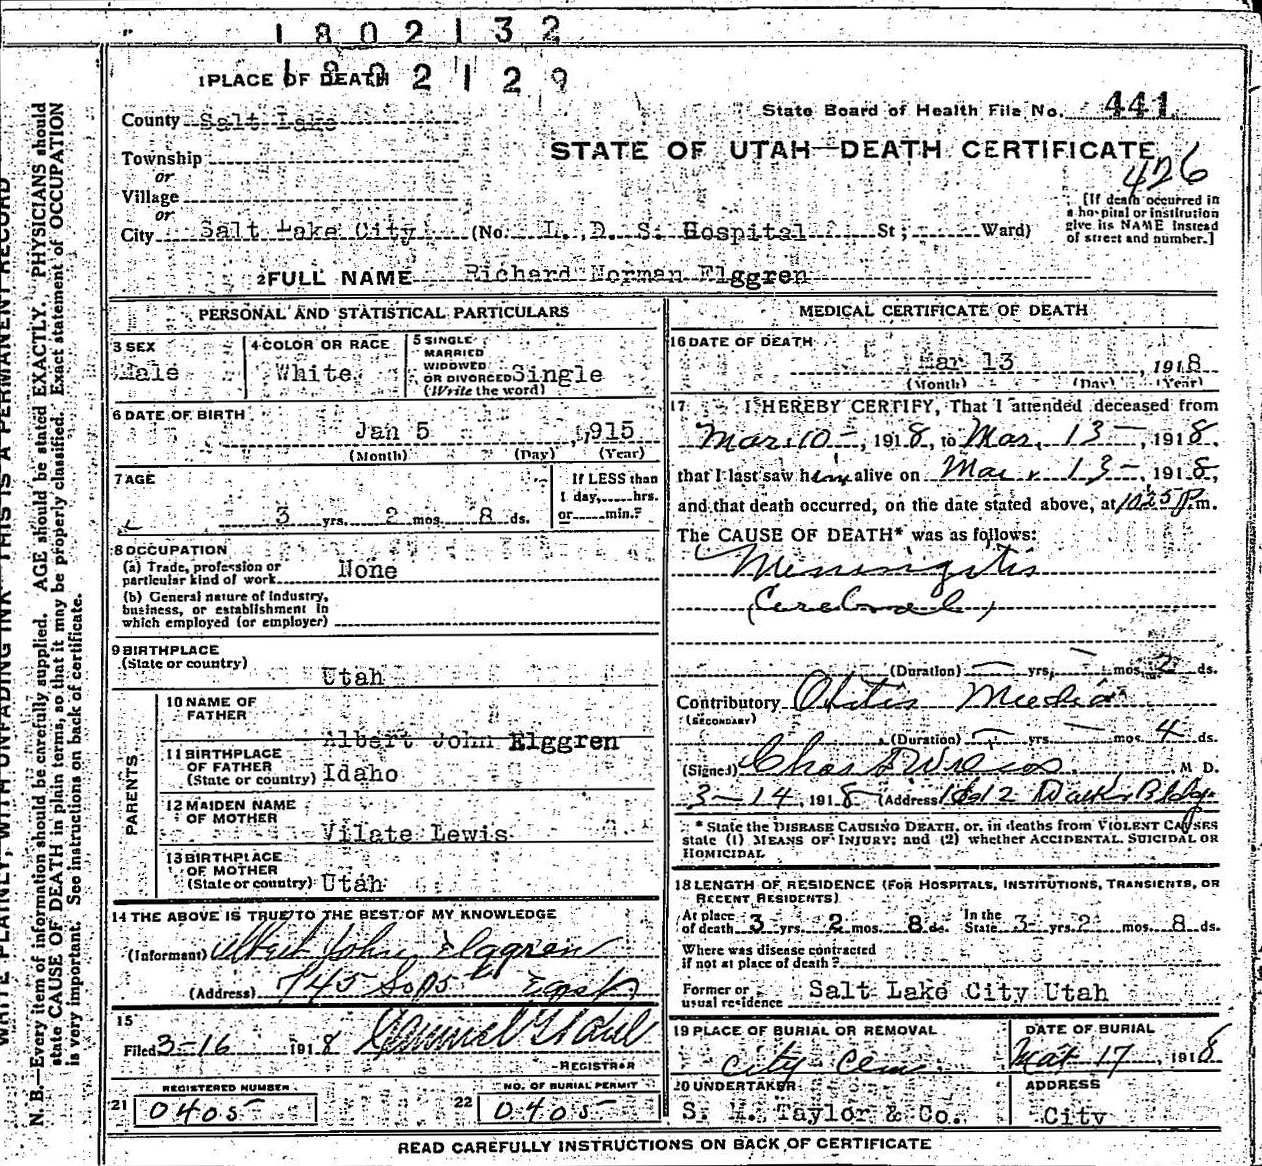 1802132
1802129
1 PLACE OF DEATH
State Board of Health File No. 441
County Salt Lake
STATE OF UTAH—DEATH CERTIFICATE
426
Township
or
Village
or
City Salt Lake City (No. L. D. S. Hospital St; Ward)
[If death occurred in
a hospital or institution
give its NAME instead
of street and number.]
2 FULL NAME Richard Norman Elggren
PERSONAL AND STATISTICAL PARTICULARS
3 SEX
Male
4 COLOR OR RACE
White
5 SINGLE
MARRIED
WIDOWED
OR DIVORCED Single
(Write the word)
6 DATE OF BIRTH
Jan 5, 1915
(Month) (Day) (Year)
7 AGE
3 yrs. 2 mos. 8 ds.
If LESS than
1 day, hrs.
or min.?
8 OCCUPATION
(a) Trade, profession or
particular kind of work None
(b) General nature of industry,
business, or establishment in
which employed (or employer)
9 BIRTHPLACE
(State or country)
Utah
PARENTS
10 NAME OF
FATHER
Albert John Elggren
11 BIRTHPLACE
OF FATHER
(State or country) Idaho
12 MAIDEN NAME
OF MOTHER
Vilate Lewis
13 BIRTHPLACE
OF MOTHER
(State or country) Utah
14 THE ABOVE IS TRUE TO THE BEST OF MY KNOWLEDGE
(Informant) Albert John Elggren
(Address) 745 So East
15
Filed 3-16 1918
REGISTRAR
REGISTERED NUMBER
21 0405
NO. OF BURIAL PERMIT
22 0405
MEDICAL CERTIFICATE OF DEATH
16 DATE OF DEATH
Mar 13, 1918
(Month) (Day) (Year)
17 I HEREBY CERTIFY, That I attended deceased from
Mar 10-, 1918, to Mar. 13-, 1918,
that I last saw him alive on Mar. 13-, 1918,
and that death occurred, on the date stated above, at 10.25 P.m.
The CAUSE OF DEATH* was as follows:
Meningitis
(Cerebral)
(Duration) — yrs. — mos. 2 ds.
Contributory Otitis Media
(SECONDARY)
(Duration) — yrs. — mos. 4 ds.
(Signed) Chas Wilcox, M D.
3-14, 1918 (Address) Walker Bldg.
* State the DISEASE CAUSING DEATH, or, in deaths from VIOLENT CAUSES
state (1) MEANS OF INJURY; and (2) whether ACCIDENTAL, SUICIDAL OR
HOMICIDAL
18 LENGTH OF RESIDENCE (FOR HOSPITALS, INSTITUTIONS, TRANSIENTS, OR
RECENT RESIDENTS)
At place
of death 3 yrs. 2 mos. 8 ds.
In the
State 3 yrs. 2 mos. 8 ds.
Where was disease contracted
if not at place of death?
Former or
usual residence Salt Lake City Utah
19 PLACE OF BURIAL OR REMOVAL
City Cem
DATE OF BURIAL
Mar 17, 1918
20 UNDERTAKER
S. M. Taylor & Co.
ADDRESS
City
READ CAREFULLY INSTRUCTIONS ON BACK OF CERTIFICATE
WRITE PLAINLY, WITH UNFADING INK—THIS IS A PERMANENT RECORD
N. B.—Every item of information should be carefully supplied. AGE should be stated EXACTLY. PHYSICIANS should
state CAUSE OF DEATH in plain terms, so that it may be properly classified. Exact statement of OCCUPATION
is very important. See instructions on back of certificate.